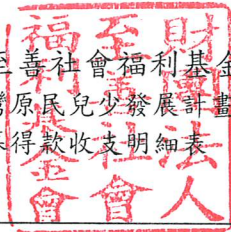 至善社會福利基金
灣原民兒少發展計畫
得款收支明細表
財團法人
至善社會
福利基金會